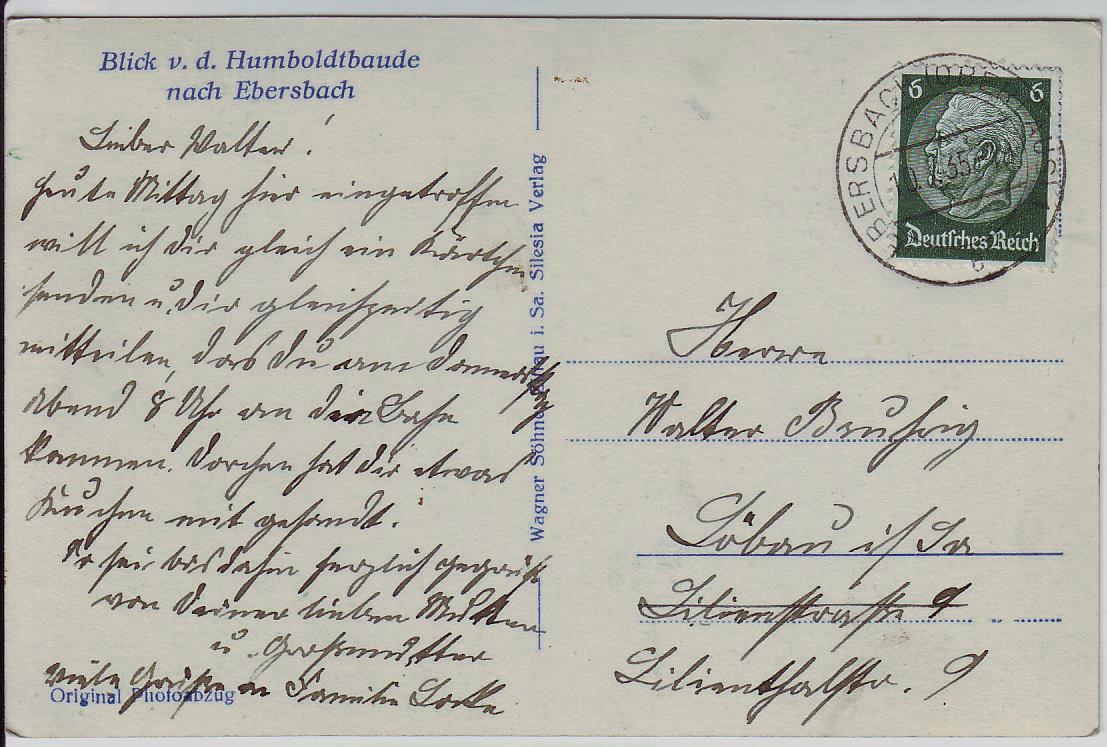 Blick v. d. Humboldtbaude
nach Ebersbach
Lieber Walter!
Heute Mittag hier eingetroffen
will ich dir gleich ein Kärtchen
senden u. dir gleichzeitig
mitteilen, das du am Donnerstag
abend 8 Uhr an die Bahn
kommen. Dorchen hat dir etwas
Kuchen mit gesandt.
So sei bis dahin herzlich gegrüßt
von deiner lieben Mutter
u. Großmutter
Viele Grüße an Familie
Original Photoabzug
Wagner Söhne, i. Sa. Silesia Verlag
6 6
Deutsches Reich
EBERSBACH
Herrn
Walter Bruhsig
Löbau i/Sa
Lilienstraße 9
Lilienthalstr. 9